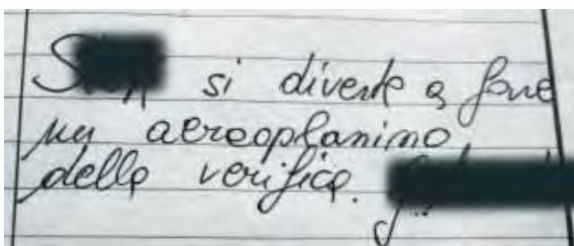 si diverte a fare
un aereoplanino
della verifica.